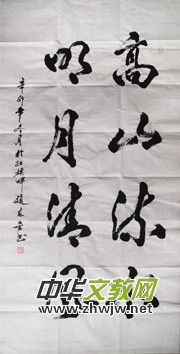 高山流水
明月清风
辛卯年冬月於
中华文教网
www.zhwjw.net